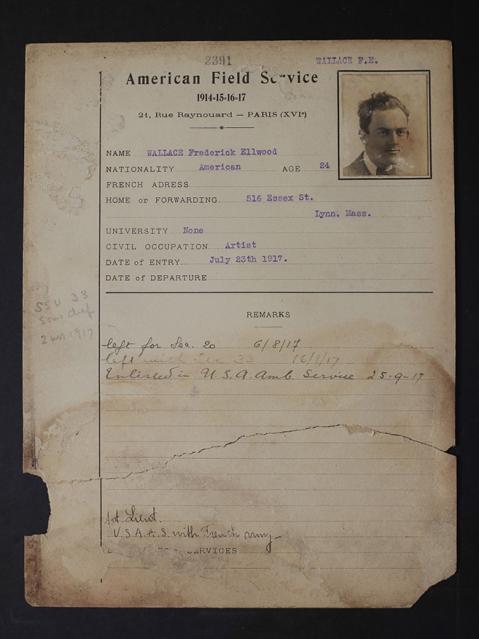 2391
WALLACE F.E.
American Field Service
1914-15-16-17
21, Rue Raynouard — PARIS (XVIe)
NAME WALLACE Frederick Ellwood
NATIONALITY American AGE 24
FRENCH ADRESS
HOME or FORWARDING 516 Essex St.
Lynn, Mass.
UNIVERSITY None
CIVIL OCCUPATION Artist
DATE of ENTRY July 23th 1917.
DATE of DEPARTURE
SSU 33
1917
REMARKS
left for Sec. 20 6/8/17
left with Sec 33 16/8/17
Enlisted in U.S.A. Amb. Service 25-9-17
1st Lieut.
U.S.A.A.S. with French Army
SERVICES